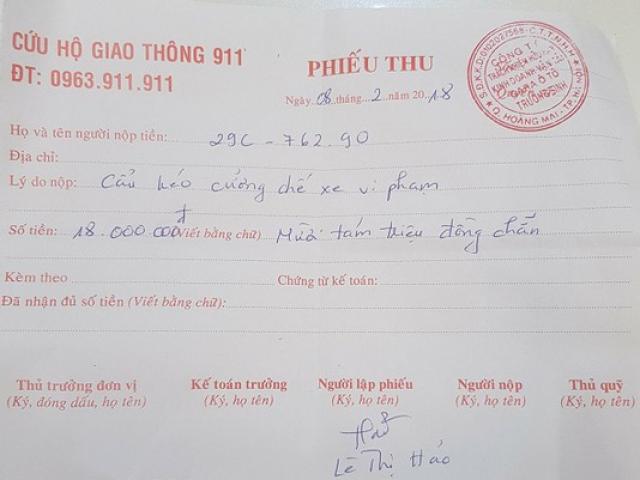 CỨU HỘ GIAO THÔNG 911
ĐT: 0963.911.911
PHIẾU THU
Ngày 08 tháng 2 năm 2018
S.Đ.K.K.D:0102027568-C.T.T.N.H.H
CÔNG TY
KINH DOANH VẬN
GARA Ô TÔ
TRƯỜNG SINH
Q. HOÀNG MAI - TP. HÀ NỘI
Họ và tên người nộp tiền: 29C - 762.90
Địa chỉ:
Lý do nộp: Cẩu kéo cưỡng chế xe vi phạm
Số tiền: 18.000.000đ (Viết bằng chữ) Mười tám triệu đồng chẵn
Kèm theo Chứng từ kế toán:
Đã nhận đủ số tiền (Viết bằng chữ):
Thủ trưởng đơn vị Kế toán trưởng Người lập phiếu Người nộp Thủ quỹ
(Ký, đóng dấu, họ tên) (Ký, họ tên) (Ký, họ tên) (Ký, họ tên) (Ký, họ tên)
Hảo
Lê Thị Hảo